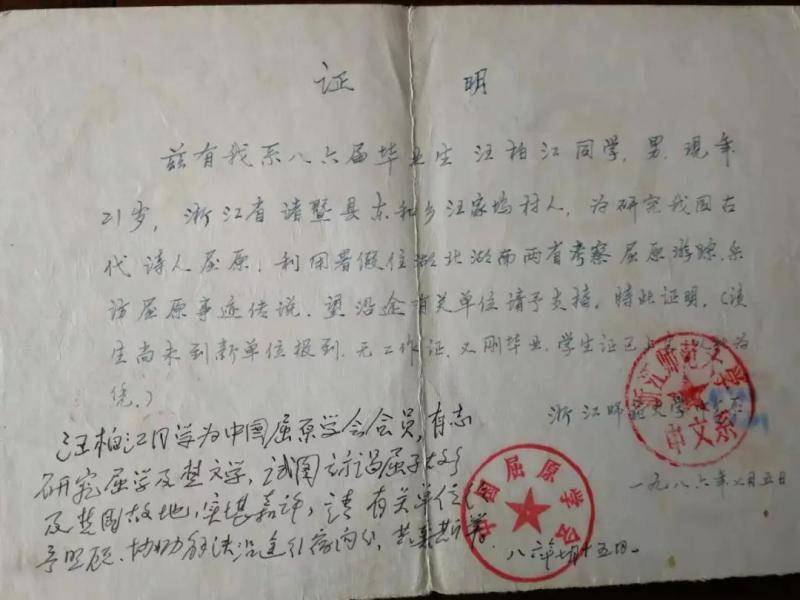 证 明
兹有我系八六届毕业生汪柏江同学,男,现年
21岁,浙江省诸暨县东和乡汪家坞村人,为研究我国古
代诗人屈原,利用暑假往湖北湖南两省考察屈原游踪,采
访屈原事迹传说,望沿途有关单位请予支持。特此证明。(该
生尚未到新单位报到,无工作证,又刚毕业,学生证已上
凭。)
浙江师范大学中文系
一九八六年七月五日
浙江师范大学
中文系
汪柏江同学为中国屈原学会会员,有志
研究屈学及楚文学,试图访谒屈子故乡
及楚国故地,实堪嘉许,请有关单位给
予照顾、协助解决沿途
中国屈原学会
八六年七月十五日。